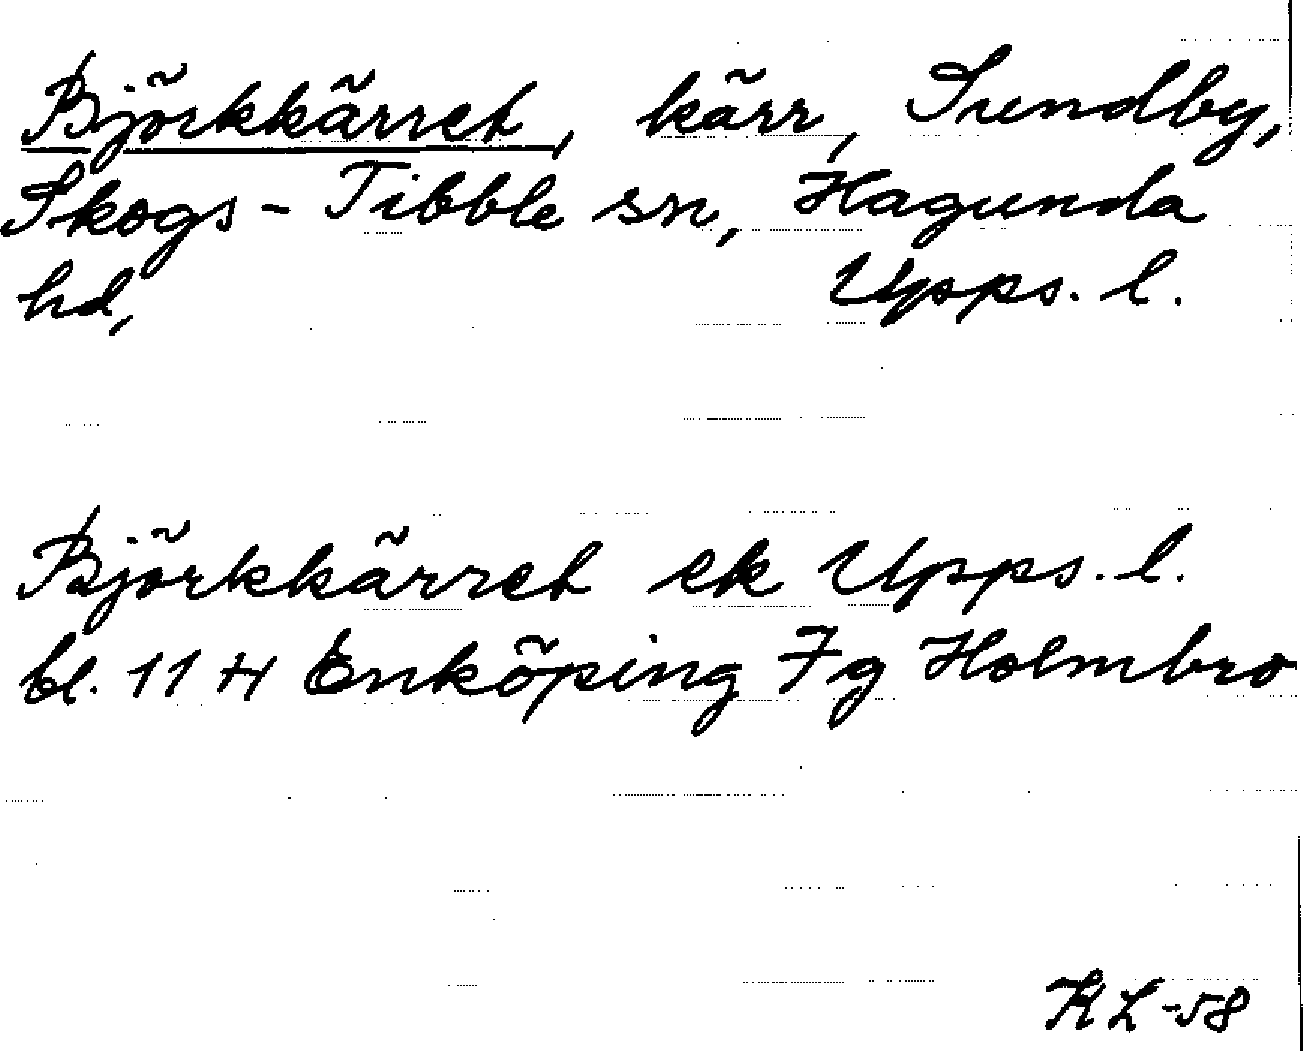 Björkkärret, kärr, Sundby,
Skogs-Tibble sn, Hagunda
hd, Upps. l.
Björkkärret ek Upps. l.
bl. 11 H Enköping 7g Holmbro
KL-58